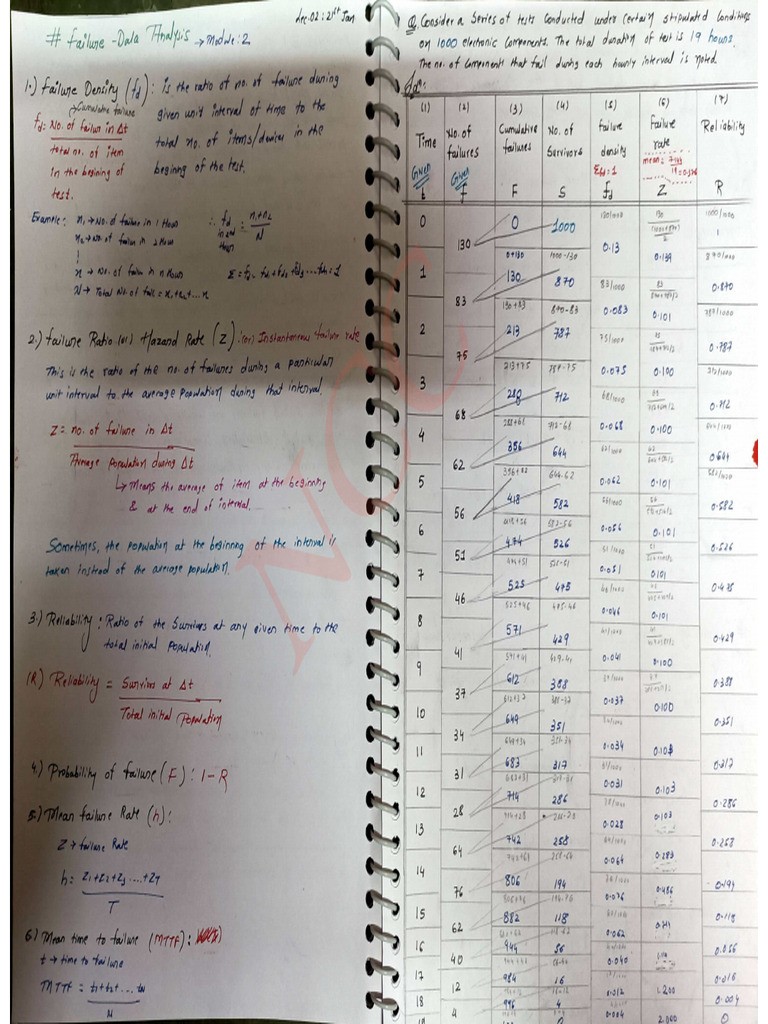 Lec.02: 21st Jan
# Failure-Data Analysis → Module: 2
1.) Failure Density (fd): is the ratio of no. of failure during
given unit interval of time to the
total no. of items/devices in the
begining of the test.
→ Cumulative failure
fd = No. of failure in Δt
total no. of item
in the begining of
test.
Example: n1 → No. of failure in 1 Hour
n2 → No. of failure in 2 Hour
n → No. of failure in n Hours
N → Total No. of fail = x1+x2+... n
∴ fd = n1+n2
N
in 2nd
Hour
Σ = fd = fd1+fd2+fd3...fdn=1
2.) Failure Ratio (or) Hazard Rate (Z): (or) Instantaneous failure rate
This is the ratio of the no. of failures during a particular
unit interval to the average population during that interval.
Z = no. of failure in Δt
Average population during Δt
↳ Means the average of item at the beginning
& at the end of interval.
Sometimes, the population at the beginning of the interval is
taken instead of the average population.
3.) Reliability: Ratio of the Survivors at any given time to the
total initial Population.
(R) Reliability = Survivors at Δt
Total initial Population
4.) Probability of failure (F): 1-R
5.) Mean failure Rate (h):
Z → failure Rate
h = Z1+Z2+Z3....+ZT
T
6.) Mean time to failure (MTTF):
t → time to failure
MTTF = t1+t2+...tn
N
NOC
Q. Consider a Series of tests conducted under certain stipulated Conditions
on 1000 electronic Components. The total duration of test is 19 hours.
The no. of Components that fail during each hourly interval is noted.
(1) (2) (3) (4) (5) (6) (7)
Time No. of failures Cumulative failures No. of Survivors failure density failure rate Reliability
Given Given Σfd=1
t f F S fd Z R
0 0 1000 1
130 0.13 0.139
1 130 870 0.870
83 0.083 0.101
2 213 787 0.787
75 0.075 0.100
3 288 712 0.712
68 0.068 0.100
4 356 644 0.644
62 0.062 0.101
5 418 582 0.582
56 0.056 0.101
6 474 526 0.526
51 0.051 0.101
7 525 475 0.475
46 0.046 0.101
8 571 429 0.429
41 0.041 0.100
9 612 388 0.388
37 0.037 0.100
10 649 351 0.351
34 0.034
11 683 317 0.317
31 0.031 0.103
12 714 286 0.286
28 0.028 0.103
13 742 258 0.258
64 0.064 0.283
14 806 194 0.194
76 0.076 0.486
15 882 118 0.118
62 0.062
16 944 56 0.056
40 0.040
17 984 16 0.016
12 0.012 1.200
18 996 4 0.004
4 0.004 2.000
19 1000 0 0